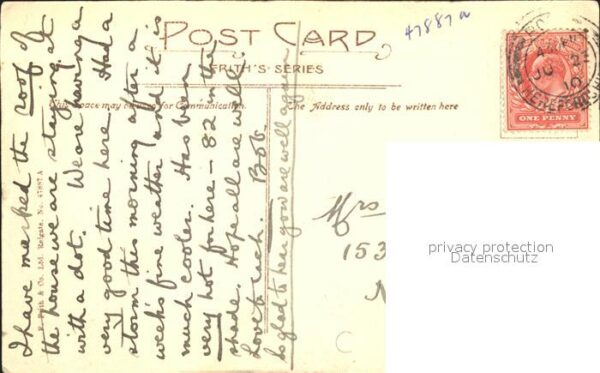 47887a
POST CARD
FRITH'S SERIES
This space may be used for Communication.
The Address only to be written here
ONE PENNY
HEREFORDSHIRE
F. Frith & Co. Ltd. Reigate. No. 47887A
I have marked the roof of
the house we are staying at
with a dot. We are having a
very good time here. Had a
storm this morning after a
week's fine weather and it is
much cooler. Has been
very hot for here - 82 in the
shade. Hope all are well.
Love to each. Bob
So glad to hear you are well again
Mrs
153
privacy protection
Datenschutz